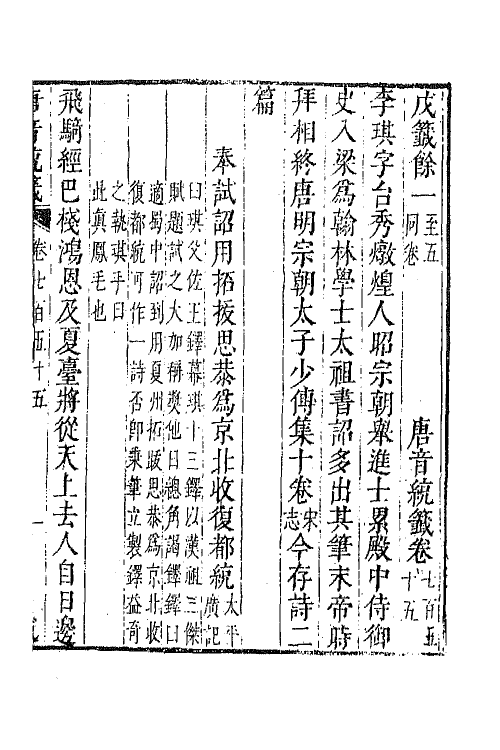 戊籤餘一至五同卷　唐音統籤卷七百五十五
李琪字台秀燉煌人昭宗朝舉進士累殿中侍御
史入梁爲翰林學士太祖書詔多出其筆末帝時
拜相終唐明宗朝太子少傅集十卷宋志今存詩二
篇
奉試詔用拓拔思恭爲京北收復都統太平廣記
曰琪父佐王鐸幕琪十三鐸以漢祖三傑
賦題試之大加稱奬他日總角謁鐸鐸曰
適蜀中詔到用夏州拓跋思恭爲京北收
復都統可作一詩否卽乘筆立製鐸益奇
之執琪乎曰
此眞鳳毛也
飛騎經巴棧鴻恩及夏臺將從天上去人自日邊
唐音統籤　卷七百五十五　一